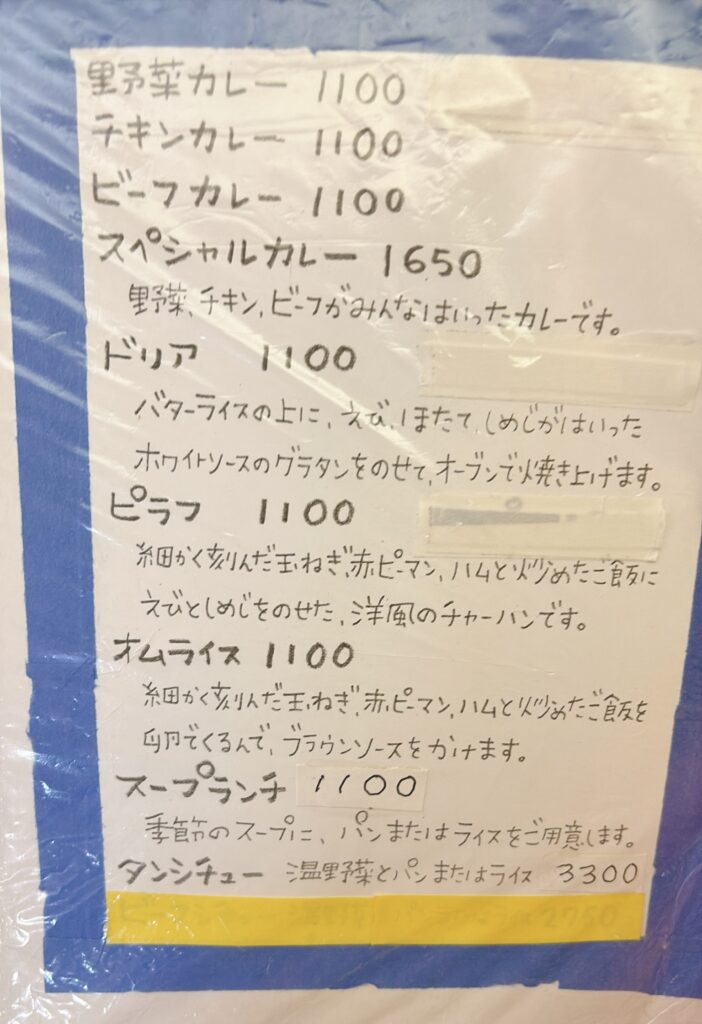 野菜カレー 1100
チキンカレー 1100
ビーフカレー 1100
スペシャルカレー 1650
野菜、チキン、ビーフがみんなはいったカレーです。
ドリア 1100
バターライスの上に、えび、ほたて、しめじがはいった
ホワイトソースのグラタンをのせて、オーブンで焼き上げます。
ピラフ 1100
細かく刻んだ玉ねぎ、赤ピーマン、ハムと炒めたご飯に
えびとしめじをのせた、洋風のチャーハンです。
オムライス 1100
細かく刻んだ玉ねぎ、赤ピーマン、ハムと炒めたご飯を
卵でくるんで、ブラウンソースをかけます。
スープランチ 1100
季節のスープに、パンまたはライスをご用意します。
タンシチュー 温野菜とパンまたはライス 3300
2750